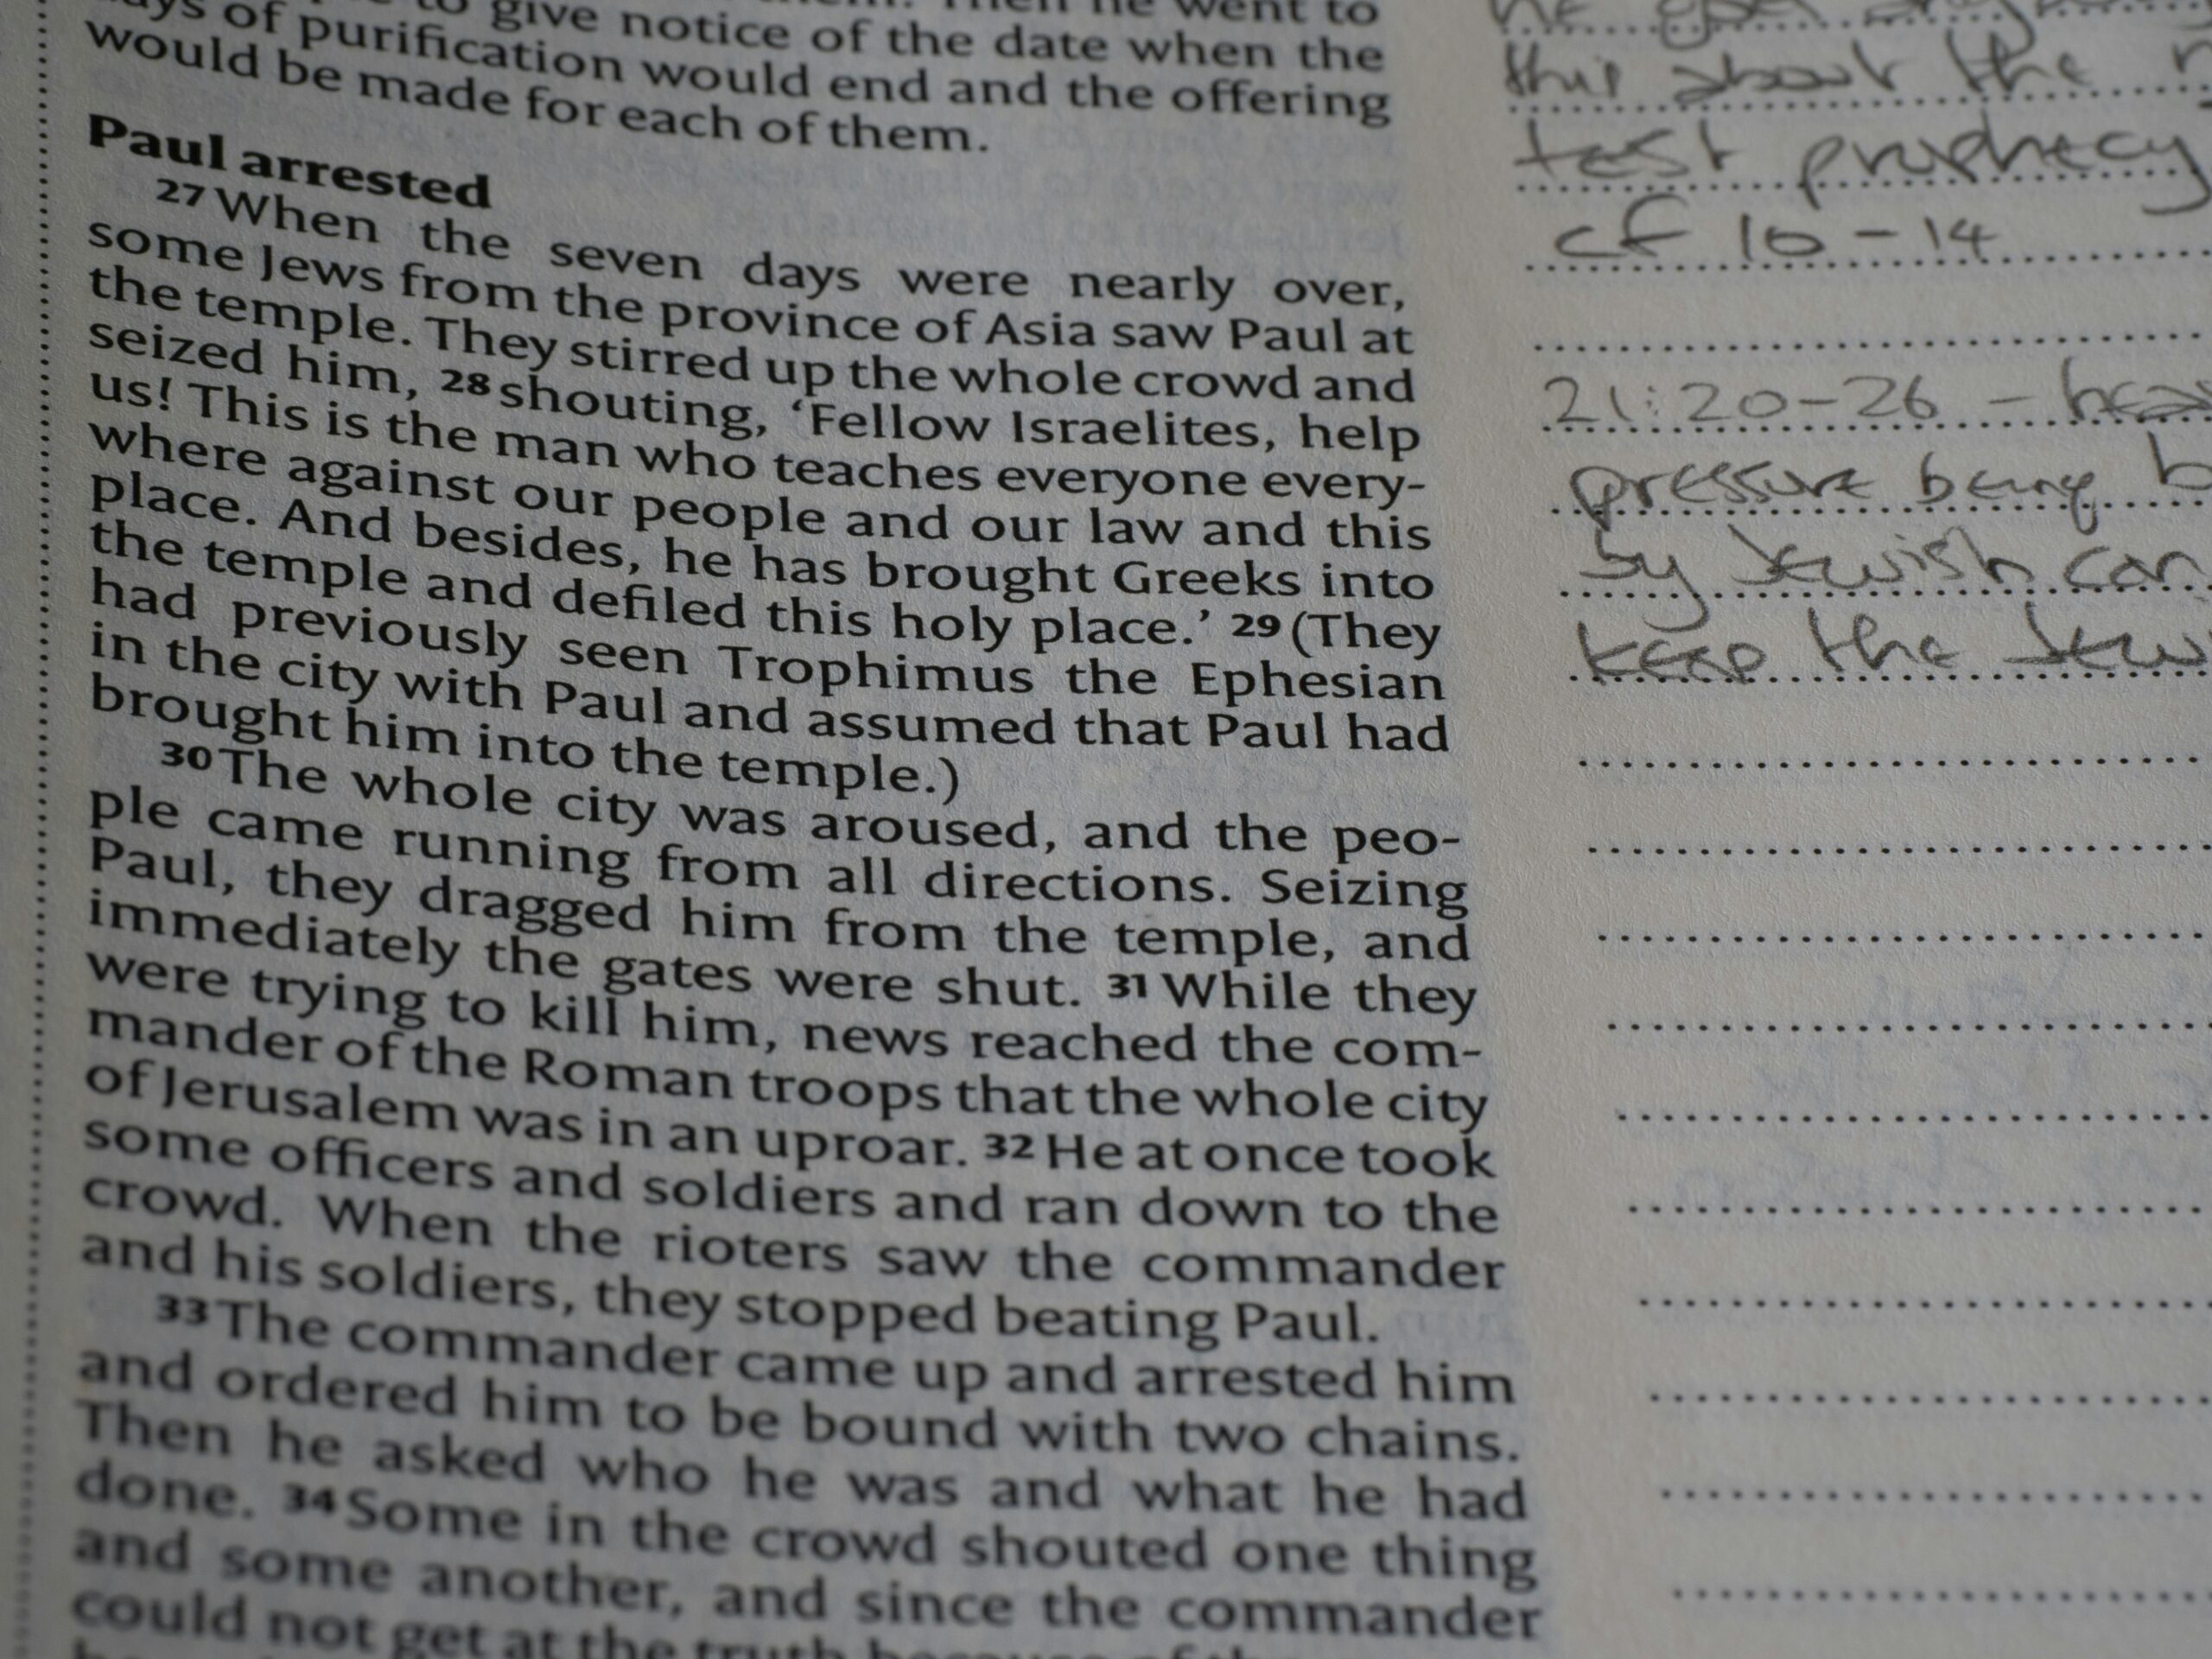 to give notice of the date when the
of purification would end and the offering
would be made for each of them.
Paul arrested
27 When the seven days were nearly over,
some Jews from the province of Asia saw Paul at
the temple. They stirred up the whole crowd and
seized him, 28 shouting, ‘Fellow Israelites, help
us! This is the man who teaches everyone every-
where against our people and our law and this
place. And besides, he has brought Greeks into
the temple and defiled this holy place.’ 29 (They
had previously seen Trophimus the Ephesian
in the city with Paul and assumed that Paul had
brought him into the temple.)
30 The whole city was aroused, and the peo-
ple came running from all directions. Seizing
Paul, they dragged him from the temple, and
immediately the gates were shut. 31 While they
were trying to kill him, news reached the com-
mander of the Roman troops that the whole city
of Jerusalem was in an uproar. 32 He at once took
some officers and soldiers and ran down to the
crowd. When the rioters saw the commander
and his soldiers, they stopped beating Paul.
33 The commander came up and arrested him
and ordered him to be bound with two chains.
Then he asked who he was and what he had
done. 34 Some in the crowd shouted one thing
and some another, and since the commander
could not get at the truth because of the
this about the
test prophecy
cf 10-14
21:20-26 -
pressure being
by Jewish
keep the